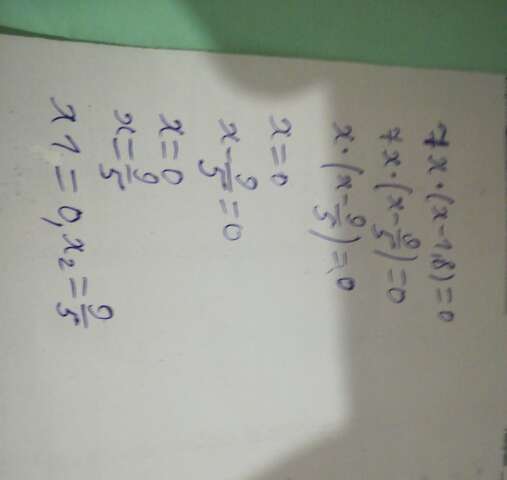 7x·(x-1,8)=0
7x·(x-9/5)=0
x·(x-9/5)=0
x=0
x-9/5=0
x=0
x=9/5
x1=0, x2=9/5